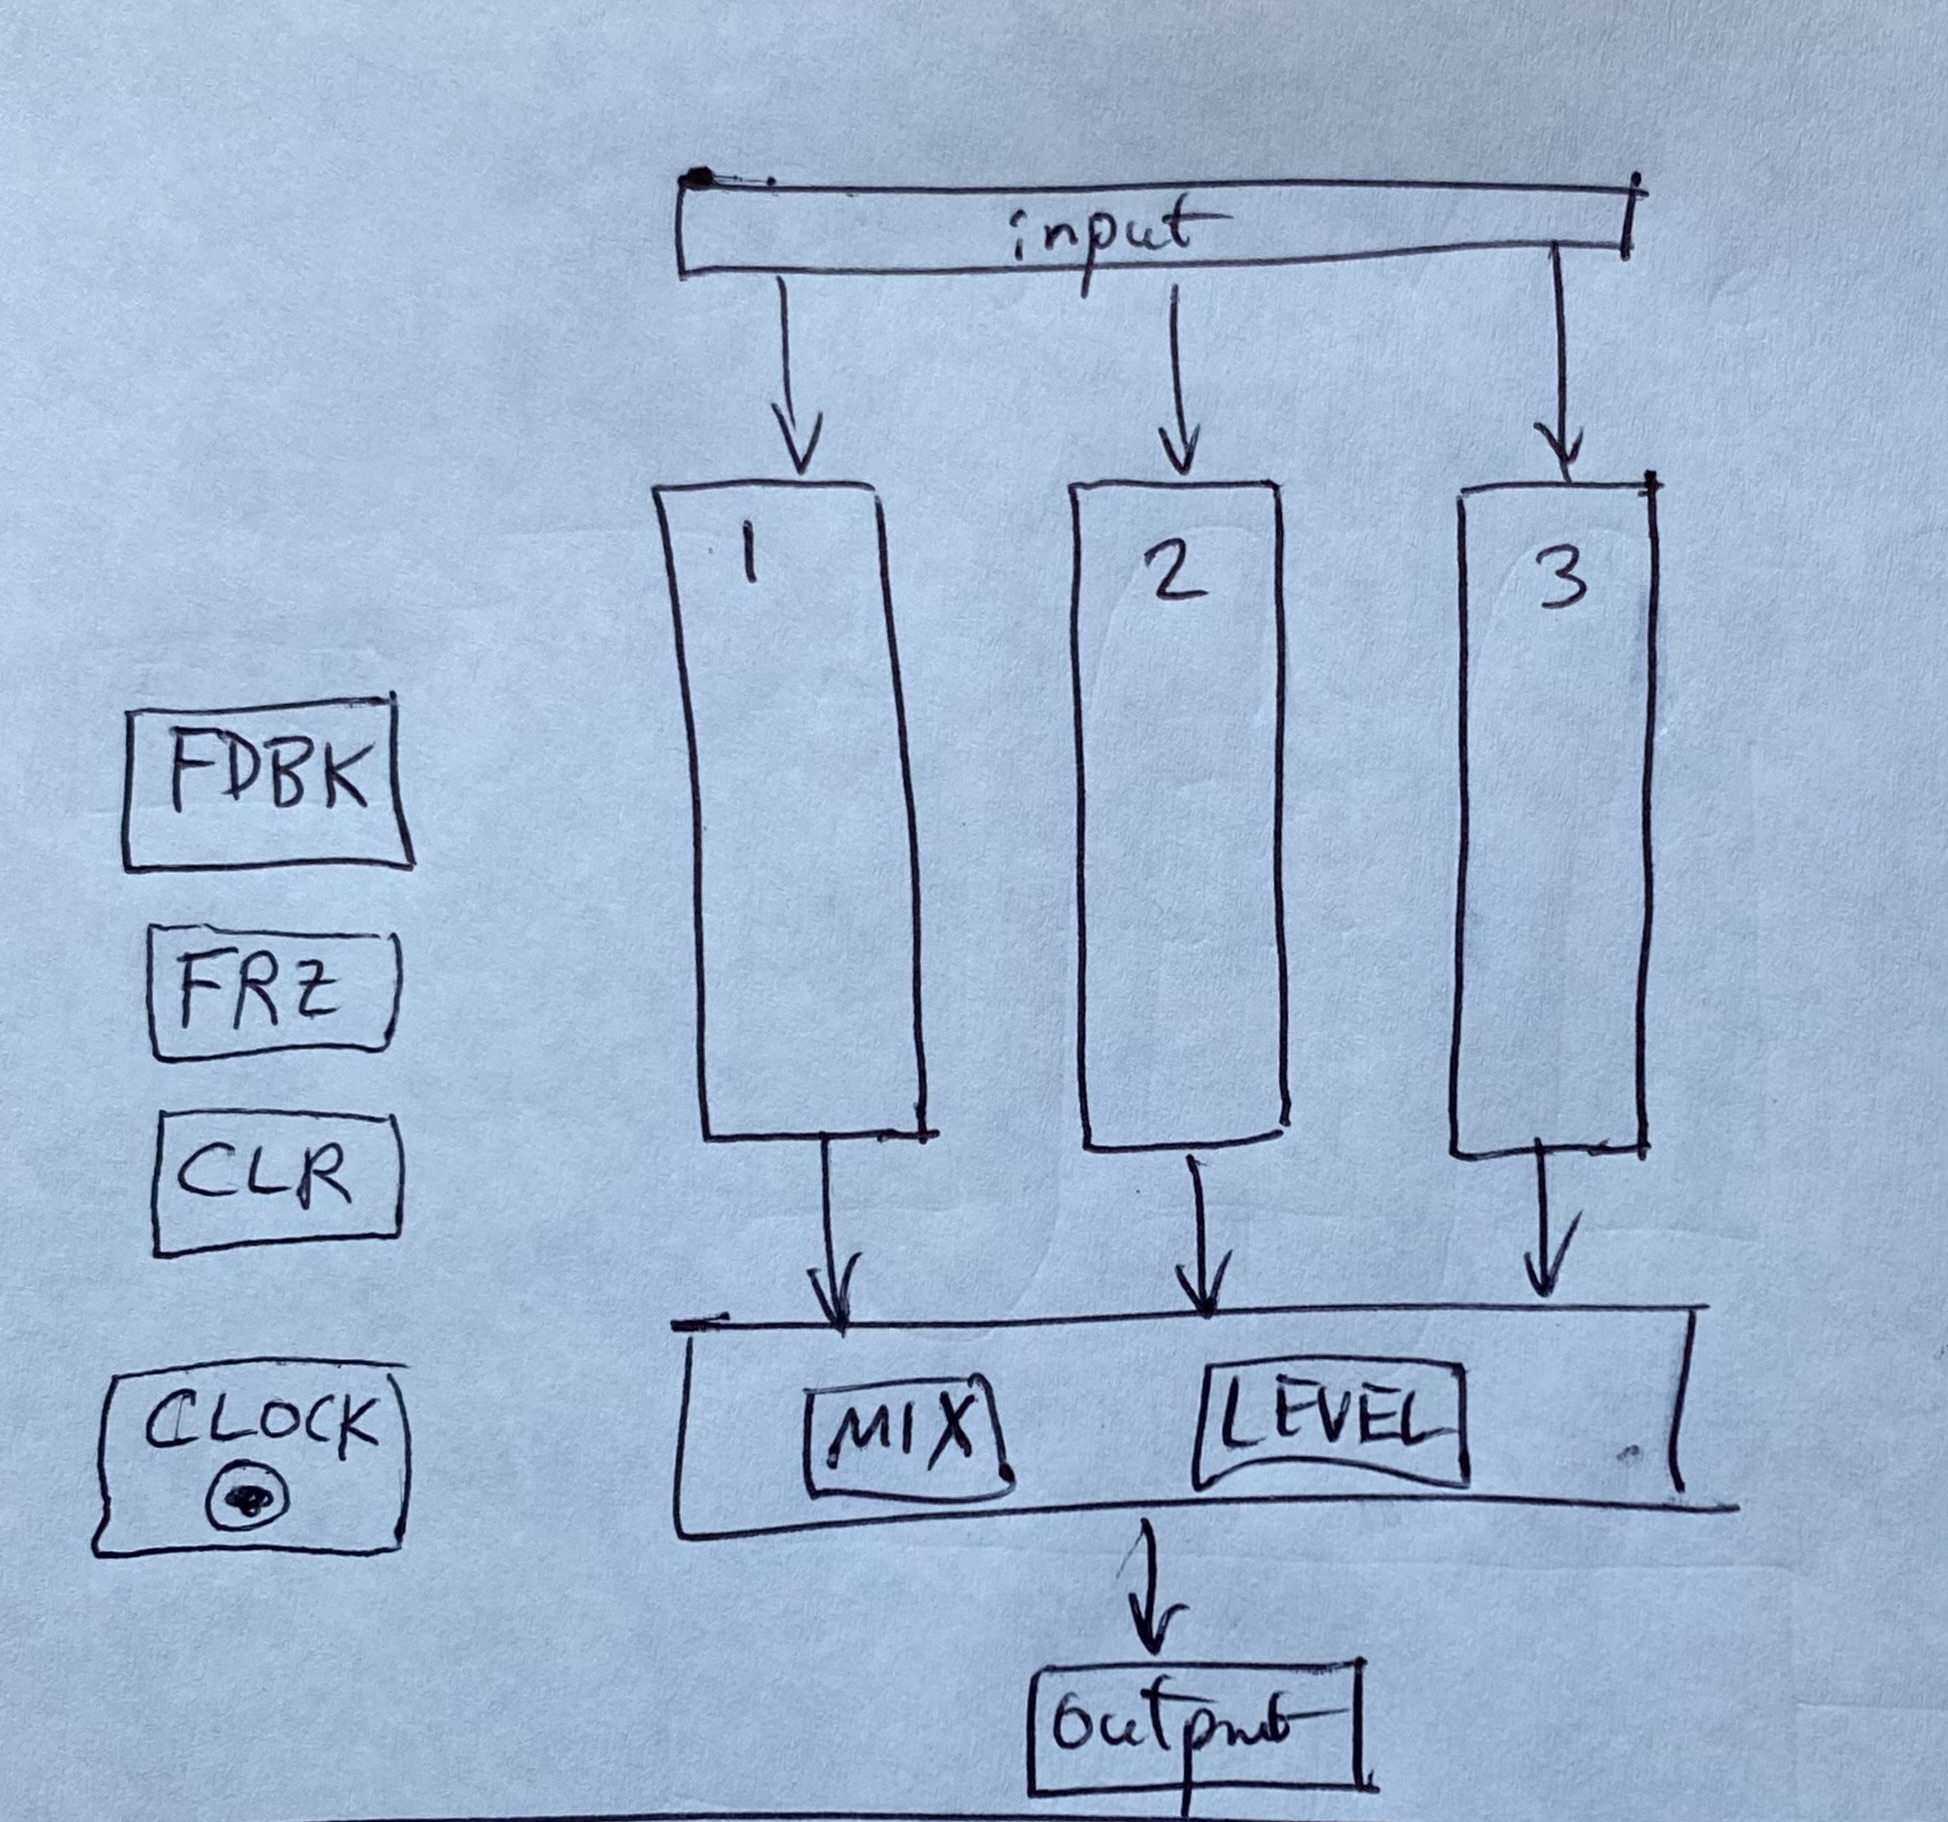 input
1
2
3
FDBK
FRZ
CLR
CLOCK
MIX
LEVEL
output